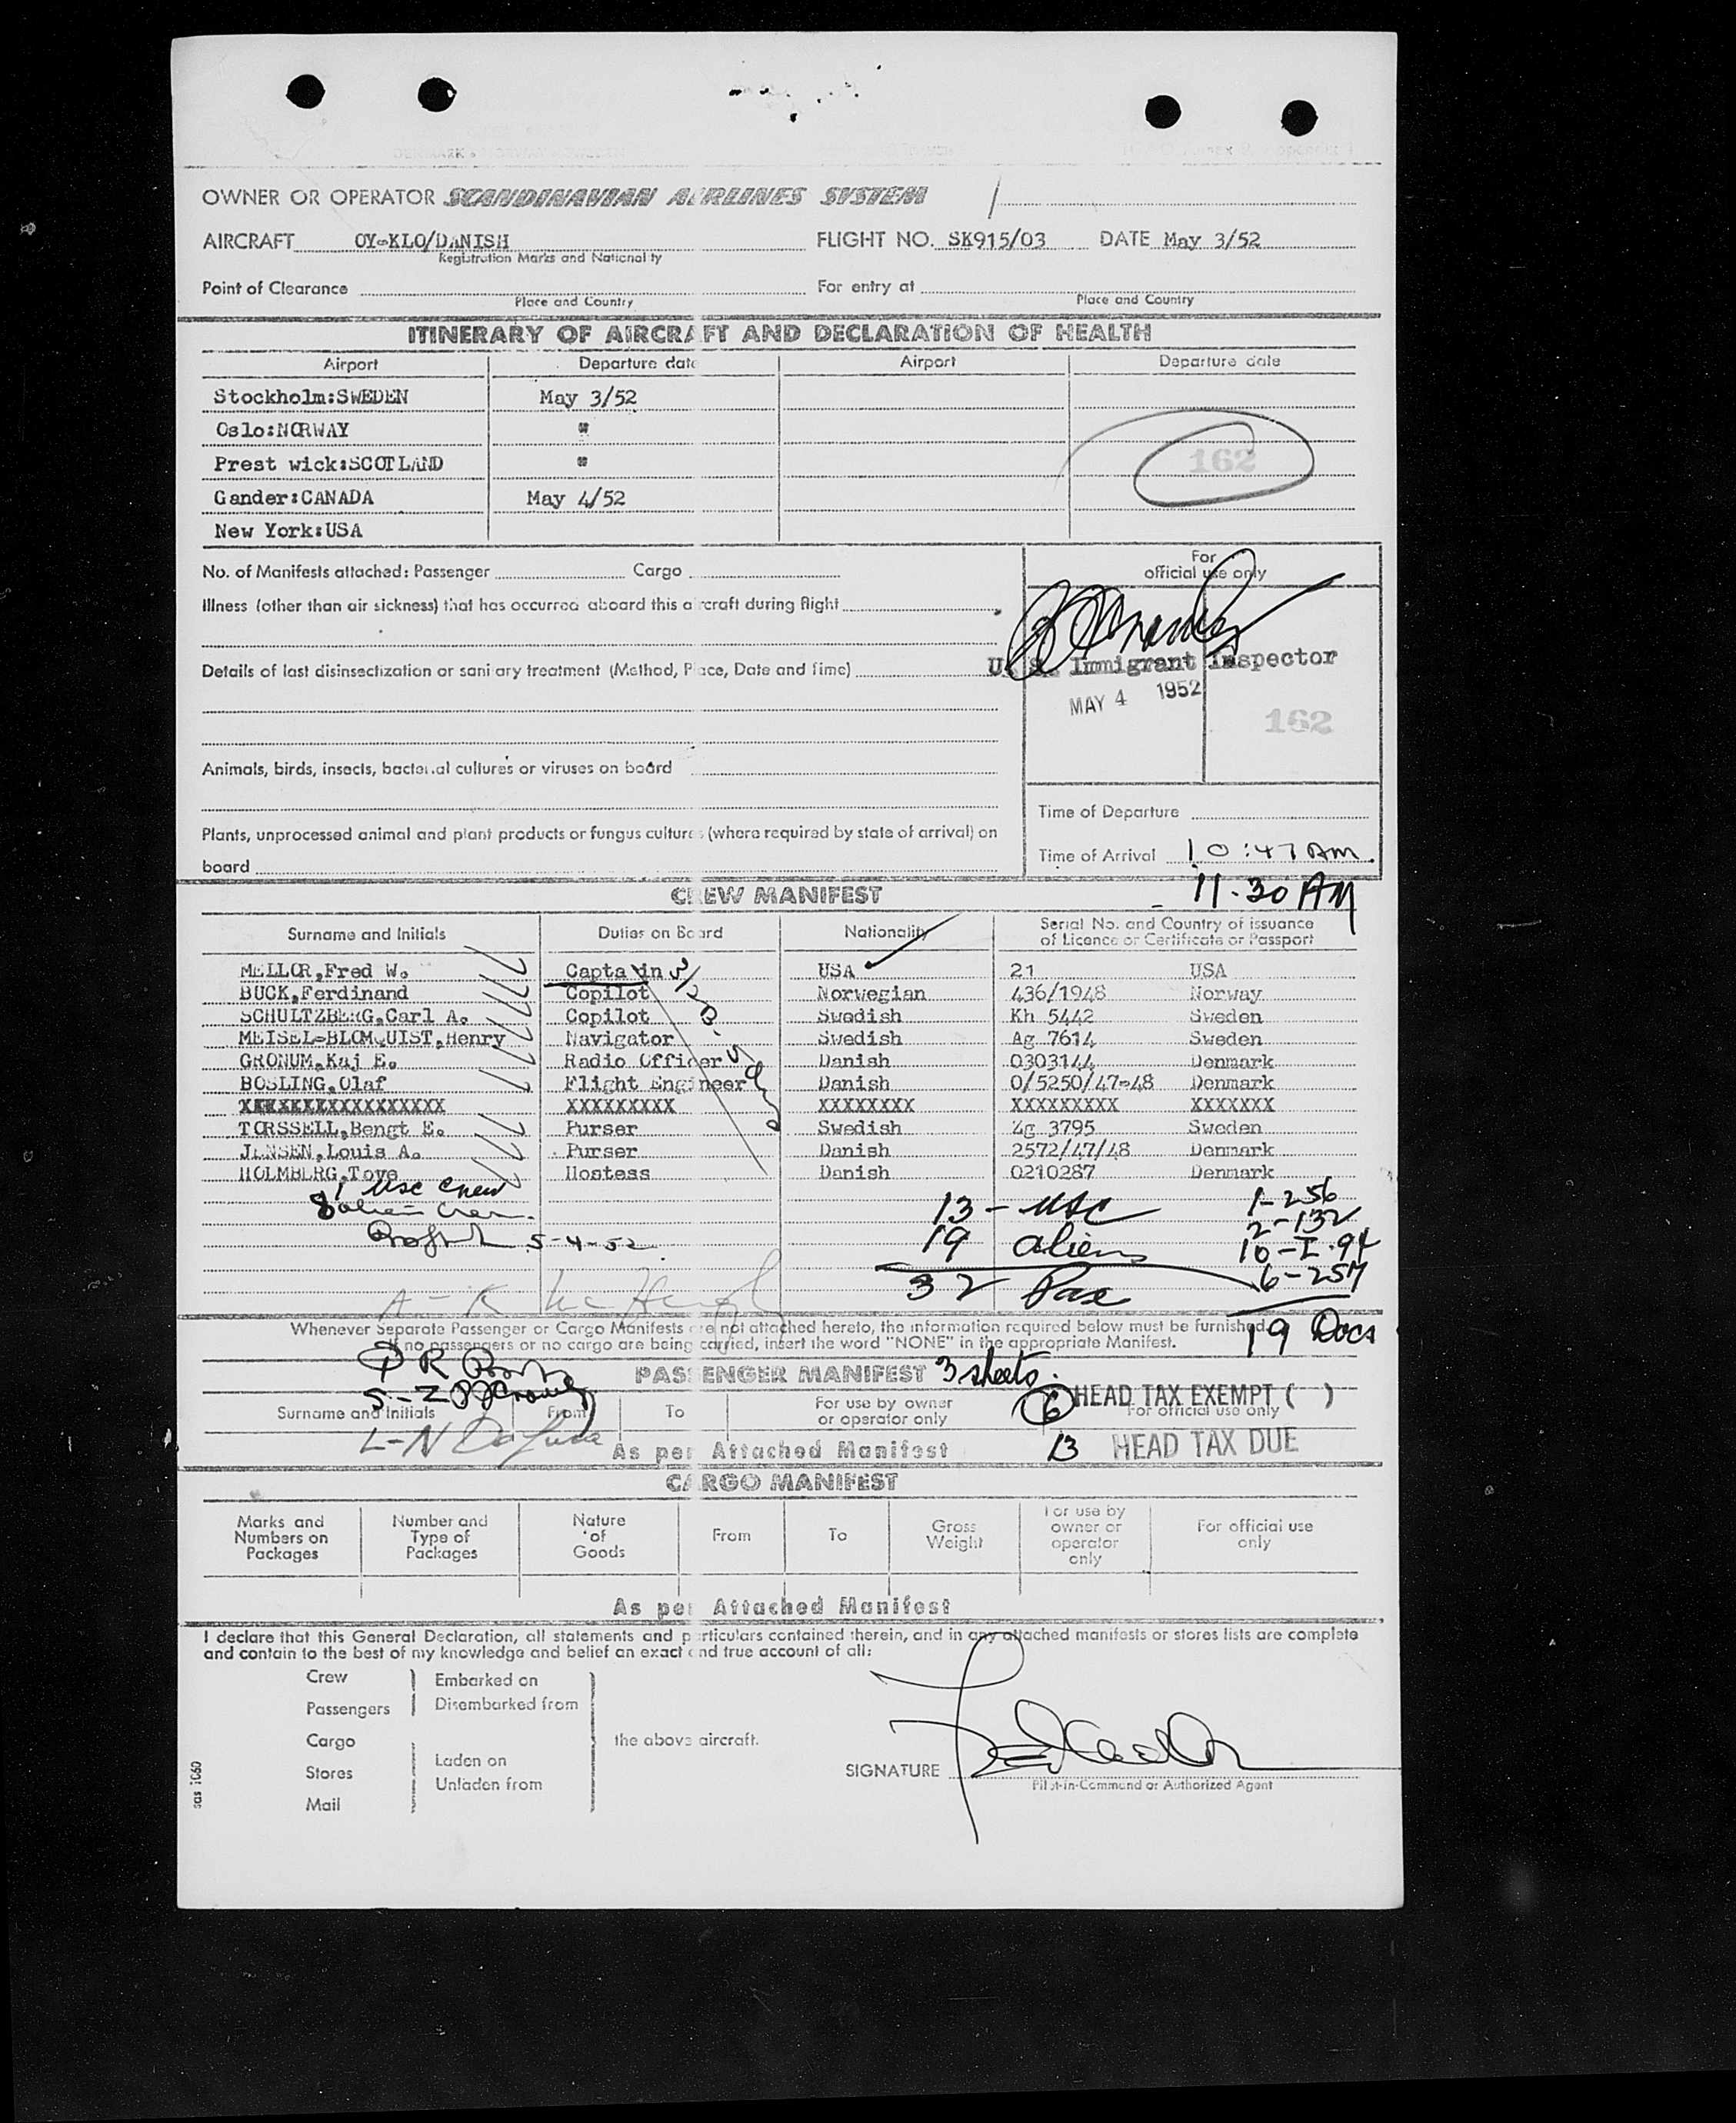 OWNER OR OPERATOR SCANDINAVIAN AIRLINES SYSTEM
AIRCRAFT OY-KLO/DANISH FLIGHT NO. SK915/03 DATE May 3/52
Registration Marks and Nationality
Point of Clearance For entry at
Place and Country Place and Country
ITINERARY OF AIRCRAFT AND DECLARATION OF HEALTH
Airport Departure date Airport Departure date
Stockholm:SWEDEN May 3/52
Oslo:NORWAY "
Prest wick:SCOTLAND " 162
Gander:CANADA May 4/52
New York:USA
No. of Manifests attached: Passenger Cargo
For
official use only
Illness (other than air sickness) that has occurred aboard this aircraft during flight
Details of last disinsectization or sanitary treatment (Method, Place, Date and Time)
U. S. Immigrant Inspector
MAY 4 1952
162
Animals, birds, insects, bacterial cultures or viruses on board
Time of Departure
Plants, unprocessed animal and plant products or fungus cultures (where required by state of arrival) on
board
Time of Arrival 10:47 AM.
11-30 AM
CREW MANIFEST
Surname and Initials Duties on Board Nationality Serial No. and Country of issuance
of Licence or Certificate or Passport
MELLOR,Fred W. Captain USA 21 USA
BUCK,Ferdinand Copilot Norwegian 436/1948 Norway
SCHULTZBERG,Carl A. Copilot Swedish Kh 5442 Sweden
MEISEL-BLOMQUIST,Henry Navigator Swedish Ag 7614 Sweden
GRONUM,Kaj E. Radio Officer Danish 0303144 Denmark
BOSLING,Olaf Flight Engineer Danish 0/5250/47-48 Denmark
XXXXXXXXXXXXXXXXX XXXXXXXXX XXXXXXXX XXXXXXXXX XXXXXXX
TORSSELL,Bengt E. Purser Swedish Zg 3795 Sweden
JENSEN,Louis A. Purser Danish 2572/47/48 Denmark
HOLMBERG,Tove Hostess Danish 0210287 Denmark
1 usc crew
8 alien crew
5-4-52
13 - usc
19 aliens
32 Pax
1-256
2-132
10-I-94
6-257
19 Docs
A-K
Whenever Separate Passenger or Cargo Manifests are not attached hereto, the information required below must be furnished.
If no passengers or no cargo are being carried, insert the word "NONE" in the appropriate Manifest.
PASSENGER MANIFEST 3 sheets.
S-Z
6 HEAD TAX EXEMPT ( )
Surname and Initials From To For use by owner
or operator only
For official use only
L-N
As per Attached Manifest
13 HEAD TAX DUE
CARGO MANIFEST
Marks and
Numbers on
Packages
Number and
Type of
Packages
Nature
of
Goods
From
To
Gross
Weight
For use by
owner or
operator
only
For official use
only
As per Attached Manifest
I declare that this General Declaration, all statements and particulars contained therein, and in any attached manifests or stores lists are complete
and contain to the best of my knowledge and belief an exact and true account of all:
Crew Embarked on
Passengers Disembarked from
Cargo the above aircraft.
Stores Laden on
Unladen from
Mail
SIGNATURE
Pilot-in-Command or Authorized Agent
sas 1060